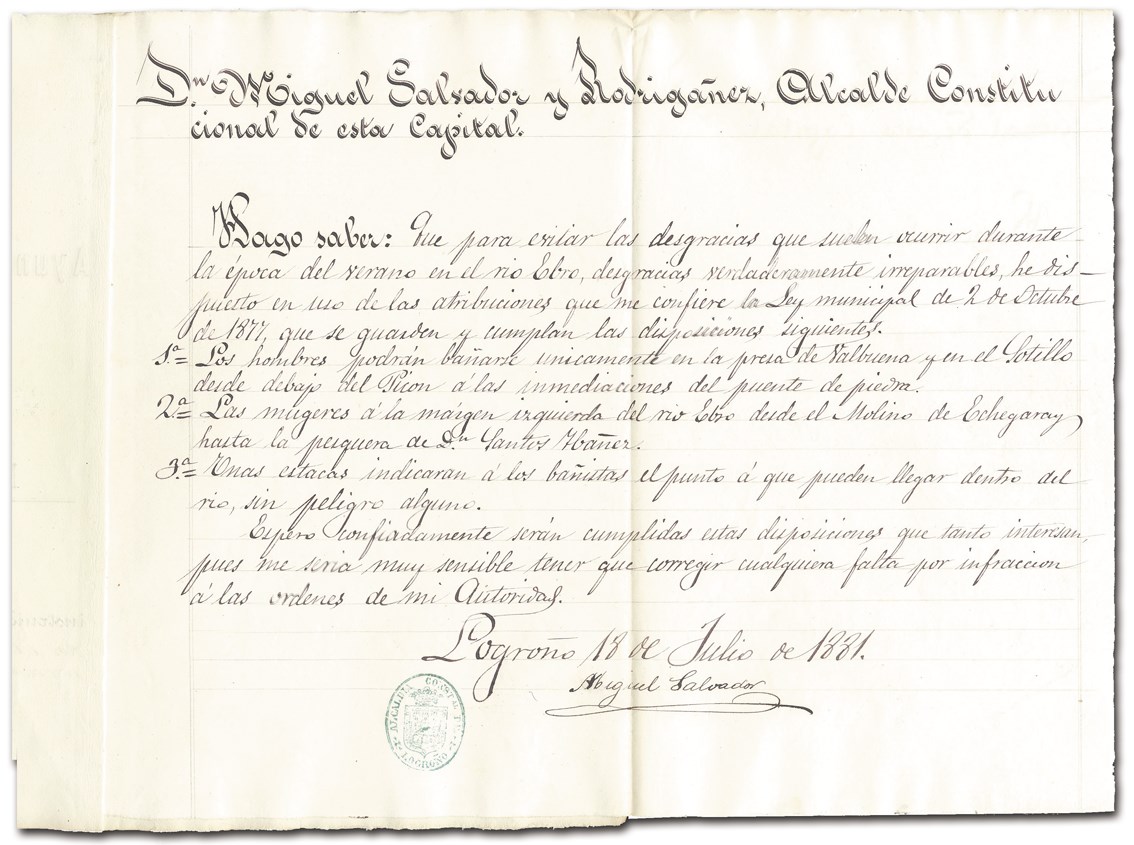 Dn. Miguel Salvador y Rodrigáñez, Alcalde Constitu
cional de esta Capital.
Hago saber: Que para evitar las desgracias que suelen ocurrir durante
la época del verano en el rio Ebro, desgracias verdaderamente irreparables, he dis-
puesto en uso de las atribuciones que me confiere la Ley municipal de 2 de Octubre
de 1877, que se guarden y cumplan las disposiciones siguientes.
1.ª= Los hombres podrán bañarse unicamente en la presa de Valbuena y en el Sotillo
desde debajo del Picon á las inmediaciones del puente de piedra.
2.ª= Las mugeres á la márgen izquierda del rio Ebro desde el Molino de Echegaray
hasta la pesquera de Dn. Santos Ybáñez.
3.ª= Unas estacas indicaran á los bañistas el punto á que pueden llegar dentro del
rio, sin peligro alguno.
Espero confiadamente serán cumplidas estas disposiciones que tanto interesan,
pues me seria muy sensible tener que corregir cualquiera falta por infraccion
á las ordenes de mi Autoridad.
Logroño 18 de Julio de 1881.
Miguel Salvador
ALCALDIA CONSTITUCIONAL
LOGROÑO